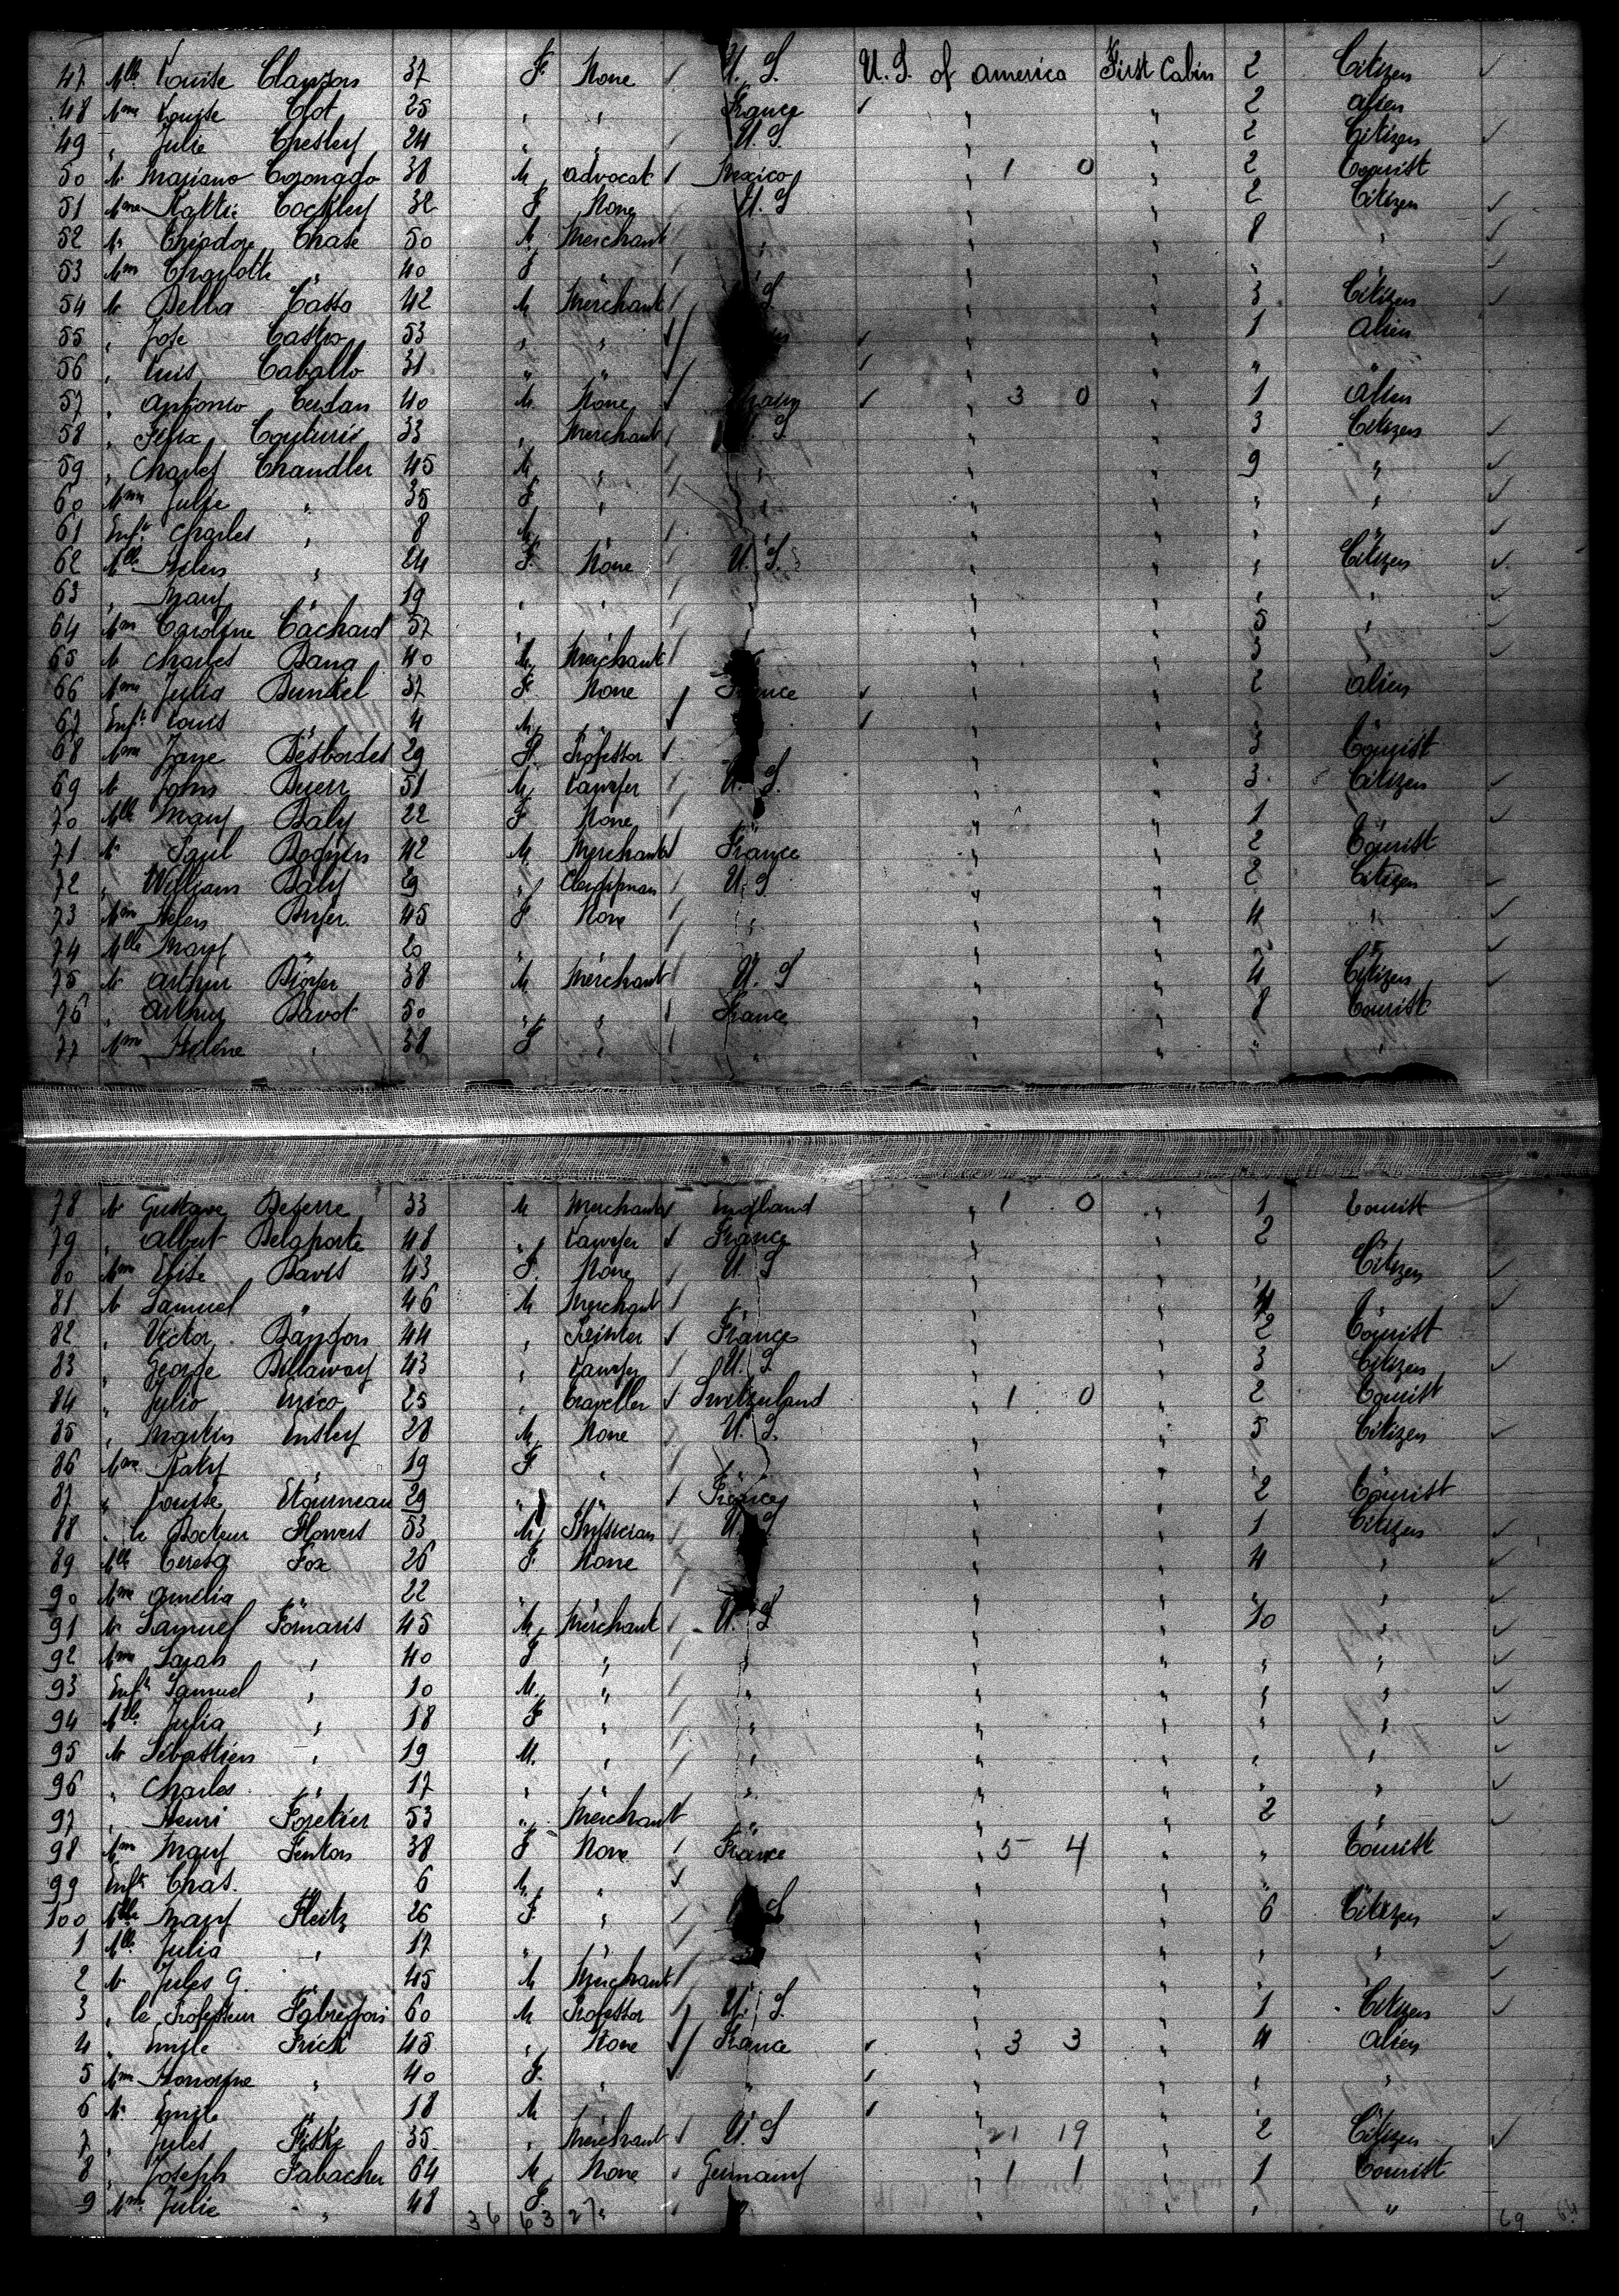 47 Mlle Louise Clawson 37 F. None / U. S. U. S. of America First Cabin 2 Citizen ✓
48 Mme Louise Clot 25 " " France ✓ " " 2 Alien
49 " Julie Chesley 24 " " U. S. " " 2 Citizen ✓
50 Mr Mariano Coronado 38 M. Advocat / Mexico " 1 0 " 2 Tourist
51 Mme Kattie Cockley 32 F None U. S " " 2 Citizen ✓
52 Mr Theodore Chase 50 M. Merchant " " " 8 " ✓
53 Mme Charlotte " 40 F " / " " " " " ✓
54 Mr Della Casso 42 M Merchant / S " " 3 Citizen ✓
55 " Jose Castro 53 " " ✓/ ✓ " " 1 Alien
56 " Luis Caballo 31 " " ✓ ✓ " " " "
57 " Antonio Cerdan 40 M. None ✓ ✓ " 3 0 " 1 Alien
58 " Felix Couturié 33 " Merchant / U. S. " " 3 Citizen ✓
59 " Charles Chandler 45 M. " / " " " 9 " ✓
60 Mme Julie " 35 F " / " " " " " ✓
61 Enft Charles " 8 M. " / " " " " " ✓
62 Mlle Helen " 24 F. None / U. S. " " " Citizen ✓
63 " Mary " 19 " " / " " " " ✓
64 Mme Caroline Cachard 57 " " / " " 5 " ✓
65 Mr Charles Dana 40 M. Merchant / " " 3 " ✓
66 Mme Julia Dunkel 37 F None / France ✓ " " 2 Alien
67 Enft Louis " 4 M. " ✓ ✓ " " " "
68 Mme Jane Desbordes 29 F. Professor / " " 3 Tourist
69 Mr John Duerr 51 M. Lawyer / U. S. " " 3 Citizen ✓
70 Mlle Mary Daly 22 F None / " " " 1 " ✓
71 Mr Paul 42 M. Merchant ✓ France " " 2 Tourist
72 " William Daly 29 " Clergyman / U. S " " 2 Citizen ✓
73 Mme Helen Dryer 45 F None / " " " 4 " ✓
74 Mlle Mary " 20 " " / " " " " " ✓
75 Mr Arthur 38 M Merchant / U. S " " 4 Citizen ✓
76 " Arthur Davot 50 " " / France " " 8 Tourist
77 Mme Hélène " 38 F " / " " " " "
78 Mr Gustave 33 M Merchant ✓ England " 1 0 " 1 Tourist
79 " Albert Delaporte 48 " Lawyer ✓ France " " 2 "
80 Mme Elise Davis 43 F. None / U. S " " " Citizen ✓
81 Mr Samuel " 46 M Merchant / " " " 4 " ✓
82 " Victor 44 " Printer ✓ France " " 2 Tourist
83 " George Dillaway 43 " Lawyer / U. S. " " 3 Citizen ✓
84 " Julio Enico 25 " Traveller ✓ Switzerland " 1 0 " 2 Tourist
85 " Martin Ensley 28 M. None / U. S. " " 5 Citizen ✓
86 Mme Katy " 19 F. " " " " "
87 " Louise Etourneau 29 " " ✓ France " " 2 Tourist
88 " le Docteur Flowers 53 M. Physician / U. S. " " 1 Citizen ✓
89 Mlle Teresa Fox 26 F. None " " 4 " ✓
90 Mme Amelia " 22 " " / " " " " ✓
91 Mr Samuel Fomaris 45 M. Merchant / U. S " " 10 " ✓
92 Mme Sarah " 40 F " / " " " " " ✓
93 Enft Samuel " 10 M. " / " " " " " ✓
94 Mlle Julia " 18 F " / " " " " " ✓
95 Mr Sébastien " 19 M. " / " " " " " ✓
96 " Charles " 17 " " / " " " " " ✓
97 " Henri Foretier 53 " Merchant " " " 2 " ✓
98 Mme Mary Fenton 38 F None / France " 5 4 " " Tourist
99 Enft Chas. " 6 M. " ✓ " " " "
100 Mlle Mary Fleitz 26 F. " / S " " 6 Citizen ✓
1 Mlle Julia " 17 " " / " " " " ✓
2 Mr Jules G. " 45 M Merchant / " " " " ✓
3 " le Professeur 60 M Professor / U. S " " 1 Citizen ✓
4 " Emile Frick 45 " None ✓/ France ✓ " 3 3 " 4 Alien
5 Mme Honorine " 40 F. " ✓ " ✓ " " " "
6 Mr Emile " 18 M " ✓ " " " "
7 " Jules Fiske 35 " Merchant / U. S " 21 19 " 2 Citizen ✓
8 " Joseph Fabacher 64 M. None ✓ Germany " 1 1 " 1 Tourist
9 Mme Julie " 48 F. " / " " " " "
36 63 27 69 64